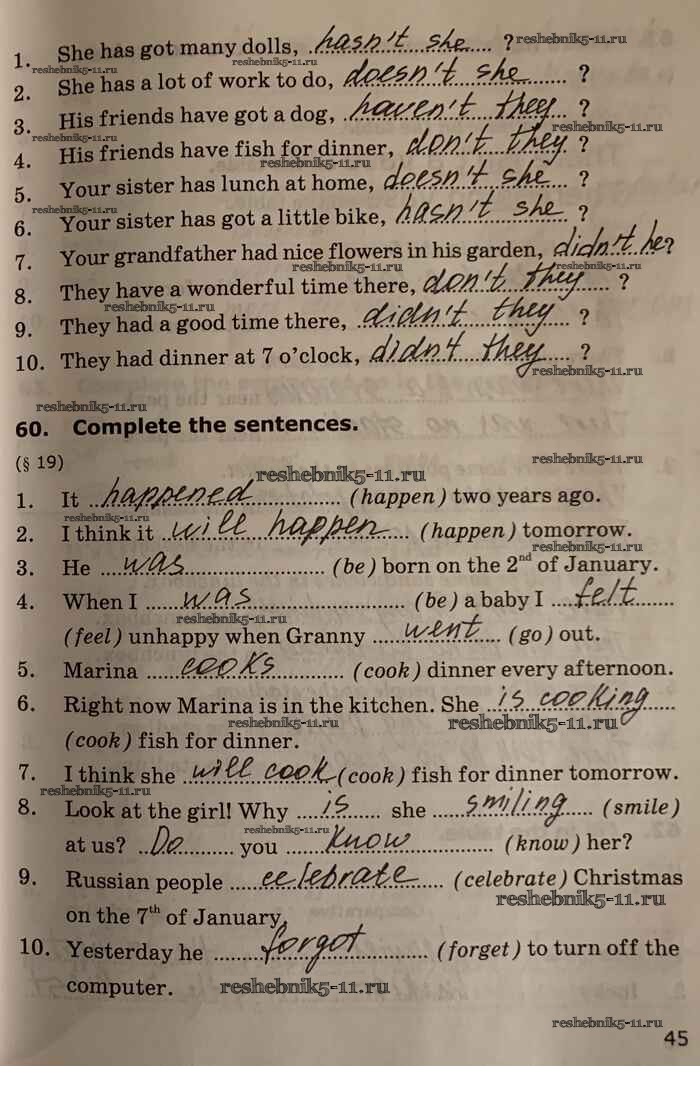 1. She has got many dolls, hasn't she ? reshebnik5-11.ru
reshebnik5-11.ru reshebnik5-11.ru
2. She has a lot of work to do, doesn't she ?
3. His friends have got a dog, haven't they ?
reshebnik5-11.ru reshebnik5-11.ru
4. His friends have fish for dinner, don't they ?
reshebnik5-11.ru
5. Your sister has lunch at home, doesn't she ?
reshebnik5-11.ru
6. Your sister has got a little bike, hasn't she ?
7. Your grandfather had nice flowers in his garden, didn't he?
reshebnik5-11.ru reshebnik5-11.ru
8. They have a wonderful time there, don't they ?
reshebnik5-11.ru
9. They had a good time there, didn't they ?
10. They had dinner at 7 o'clock, didn't they ?
reshebnik5-11.ru
reshebnik5-11.ru
60. Complete the sentences.
(§ 19) reshebnik5-11.ru
reshebnik5-11.ru
1. It happened (happen) two years ago.
reshebnik5-11.ru
2. I think it will happen (happen) tomorrow.
reshebnik5-11.ru
3. He was (be) born on the 2nd of January.
4. When I was (be) a baby I felt
reshebnik5-11.ru
(feel) unhappy when Granny went (go) out.
5. Marina cooks (cook) dinner every afternoon.
6. Right now Marina is in the kitchen. She is cooking
reshebnik5-11.ru reshebnik5-11.ru
(cook) fish for dinner.
7. I think she will cook (cook) fish for dinner tomorrow.
reshebnik5-11.ru
8. Look at the girl! Why is she smiling (smile)
reshebnik5-11.ru
at us? Do you know (know) her?
9. Russian people celebrate (celebrate) Christmas
reshebnik5-11.ru
on the 7th of January.
10. Yesterday he forgot (forget) to turn off the
computer. reshebnik5-11.ru
reshebnik5-11.ru
45